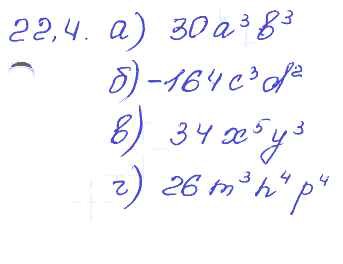 22,4. а) 30а³в³
б) -164c³d²
в) 34x⁵y³
г) 26m³n⁴p⁴